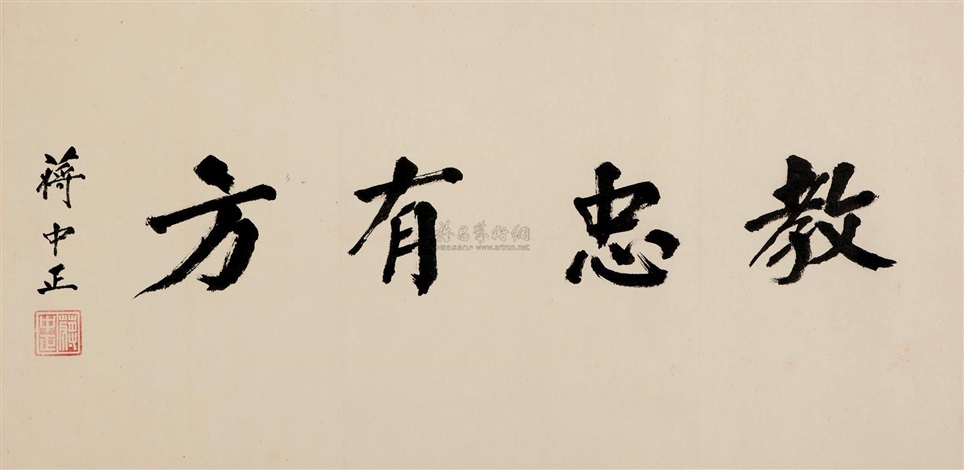 教忠有方
蔣中正
蔣中正
www.artron.net